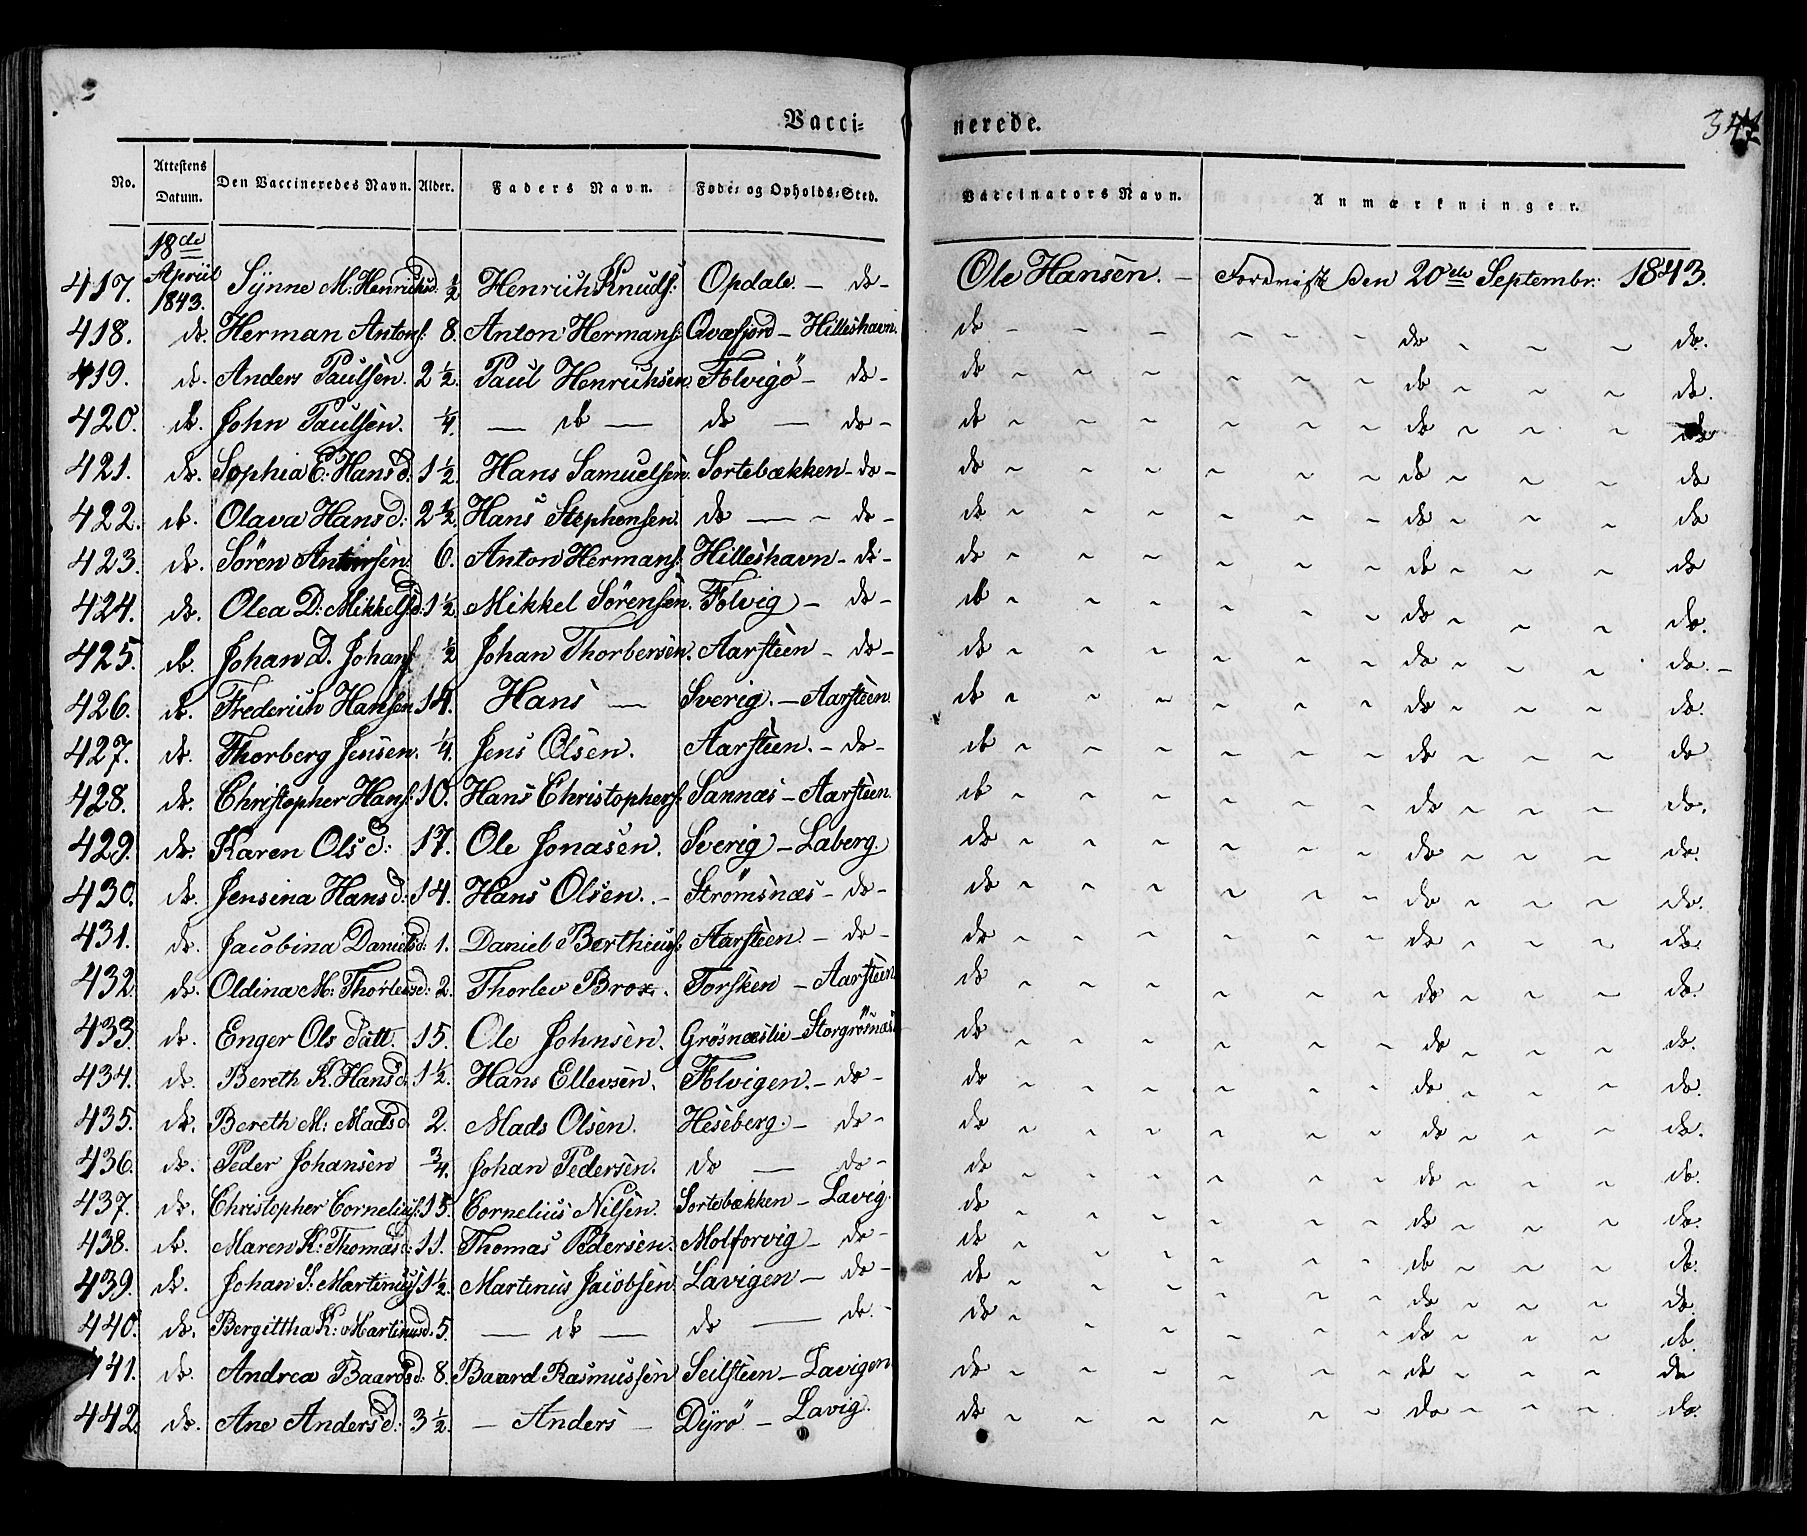 Vaccinerede. 341
No. Attestens Datum. Den Vaccineredes Navn. Alder. Faders Navn. Føde- og Opholds-Sted. Vaccinators Navn. Anmærkninger.
417. 18de April 1843. Synne M: Henrichsd. ½ Henrich Knuds: Opdale. — do — Ole Hansen. — Forevist den 20de Septembr: 1843.
418. do. Herman Antons: 8. Anton Hermans: Qvæfjord — Hilleshavn. do do do.
419. do. Anders Paulsen. 2½. Paul Henrichsen Folvigö — do — do do do.
420. do. John Paulsen. ¼. — do — do — do — do do do
421. do. Sophia C: Hansd: 1½. Hans Samuelsen. Sortebækken — do — do do do
422. do. Olava Hansd: 2½. Hans Stephensen. do — do — do do do
423. do. Sören Antonsen 6. Anton Hermans: Hilleshavn — do — do do do
424. do. Olea D: Mikkelsd: 1½ Mikkel Sörensen. Folvig — do — do do do.
425. do. Johan D. Johans ½ Johan Thorbersen. Aarsteen — do — do do do. —
426. do. Frederich Hansen 14. Hans — Sverig. — Aarsteen. do do do.
427. do. Thorberg Jensen. ¼. Jens Olsen. Aarsteen. — do — do do do
428. do. Christopher Hans: 10. Hans Christophers: Sannæs — Aarsteen. do do do.
429. do. Karen Olsd: 17. Ole Jonasen. Sverig — Laberg. do do do.
430. do. Jensina Hansd: 14. Hans Olsen. — Strömsnæs — do — do do do.
431. do. Jacobina Danielsd. 1. Daniel Berthius: Aarsteen — do — do do do.
432. do. Oldina M: Thorlevsd: 2. Thorlev Brox. Torsken — Aarsteen do do do.
433. do. Enger Ols Datt. 15. Ole Johnsen. Grösnæslie — Storgrösnæs do do do.
434. do. Bereth K. Hansd. 1½. Hans Ellevsen. Folvigen. — do — do do do.
435. do. Bereth M: Madsd 2. Mads Olsen. Heseberg. — do — do do do.
436. do. Peder Johansen ¾. Johan Pedersen. do — do — do do do.
437. do. Christopher Cornelius: 15. Cornelius Nilsen. Sortebækken — Lavig. do do do.
438. do. Maren K: Thomasd: 11. Thomas Pedersen. Molforvig — do — do do do.
439. do. Johan S. Martinus: 1½. Martinus Jacobsen Lavigen — do — do do do.
440. do. Bergittha K: Martinusd: 5. — do — do — do. — do do do
441. do. Andrea Baardsd. 8. Baard Rasmussen Seilsteen — Lavigen do do do
442. do. Ane Andersd: 3½. — Anders — Dyrö — Lavig. do do do.